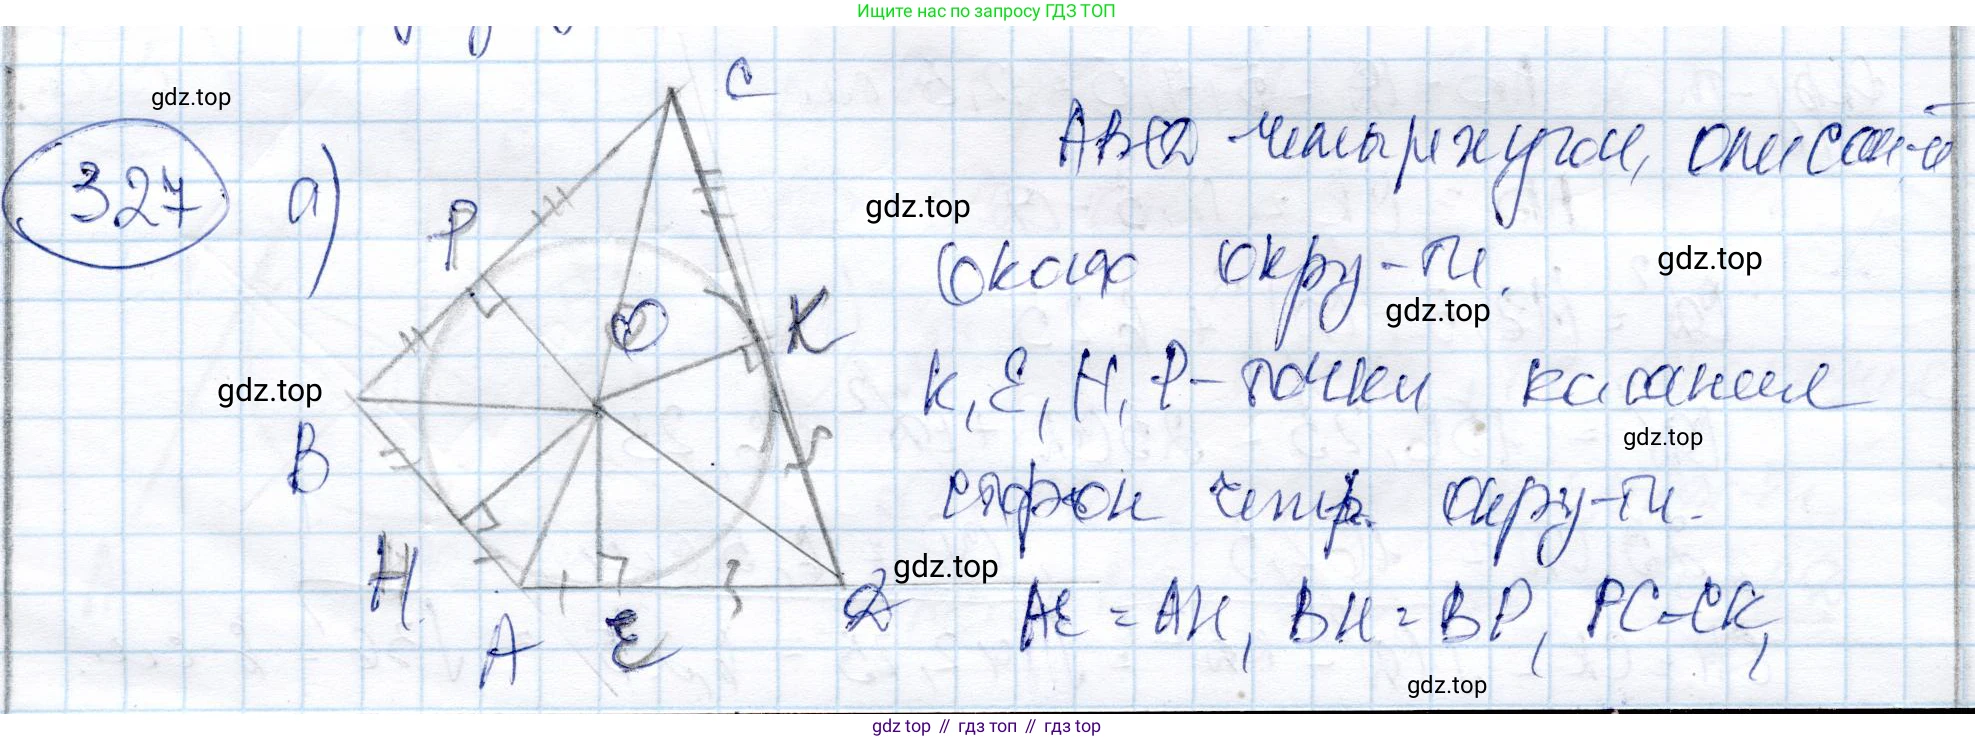 Ищите нас по запросу ГДЗ ТОП
gdz.top
327 а)
C
P
O
K
B
H
A
E
D
ABCD четырёхугол, описан-й
gdz.top
около окру-ти.
gdz.top
gdz.top
K, E, H, P - точки касания
gdz.top
gdz.top
сторон четыр. окру-ти.
gdz.top
AE = AH, BH = BP, PC = CK,
gdz.top
gdz top // гдз топ // гдз top